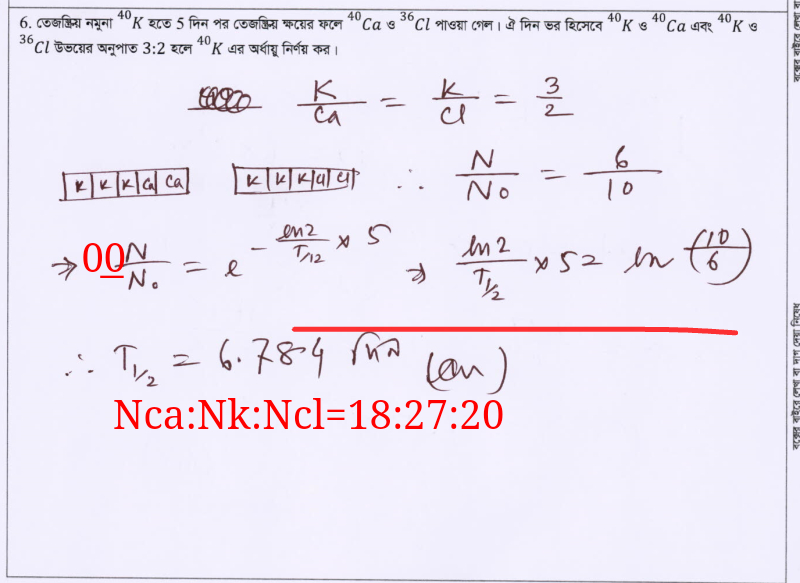 6. তেজষ্ক্রিয় নমুনা ⁴⁰K হতে 5 দিন পর তেজষ্ক্রিয় ক্ষয়ের ফলে ⁴⁰Ca ও ³⁶Cl পাওয়া গেল। ঐ দিন ভর হিসেবে ⁴⁰K ও ⁴⁰Ca এবং ⁴⁰K ও
³⁶Cl উভয়ের অনুপাত 3:2 হলে ⁴⁰K এর অর্ধায়ু নির্ণয় কর।
K/Ca = K/Cl = 3/2
K K K Ca Ca K K K Cl Cl ∴ N/N₀ = 6/10
⇒ 00 N/N₀ = e^(-ln2/T_1/2 × 5) ⇒ ln2/T_1/2 × 5 = ln(10/6)
∴ T_1/2 = 6.784 দিন (Ans)
Nca:Nk:Ncl=18:27:20
বক্সের বাইরে লেখা বা দাগ দেয়া নিষেধ